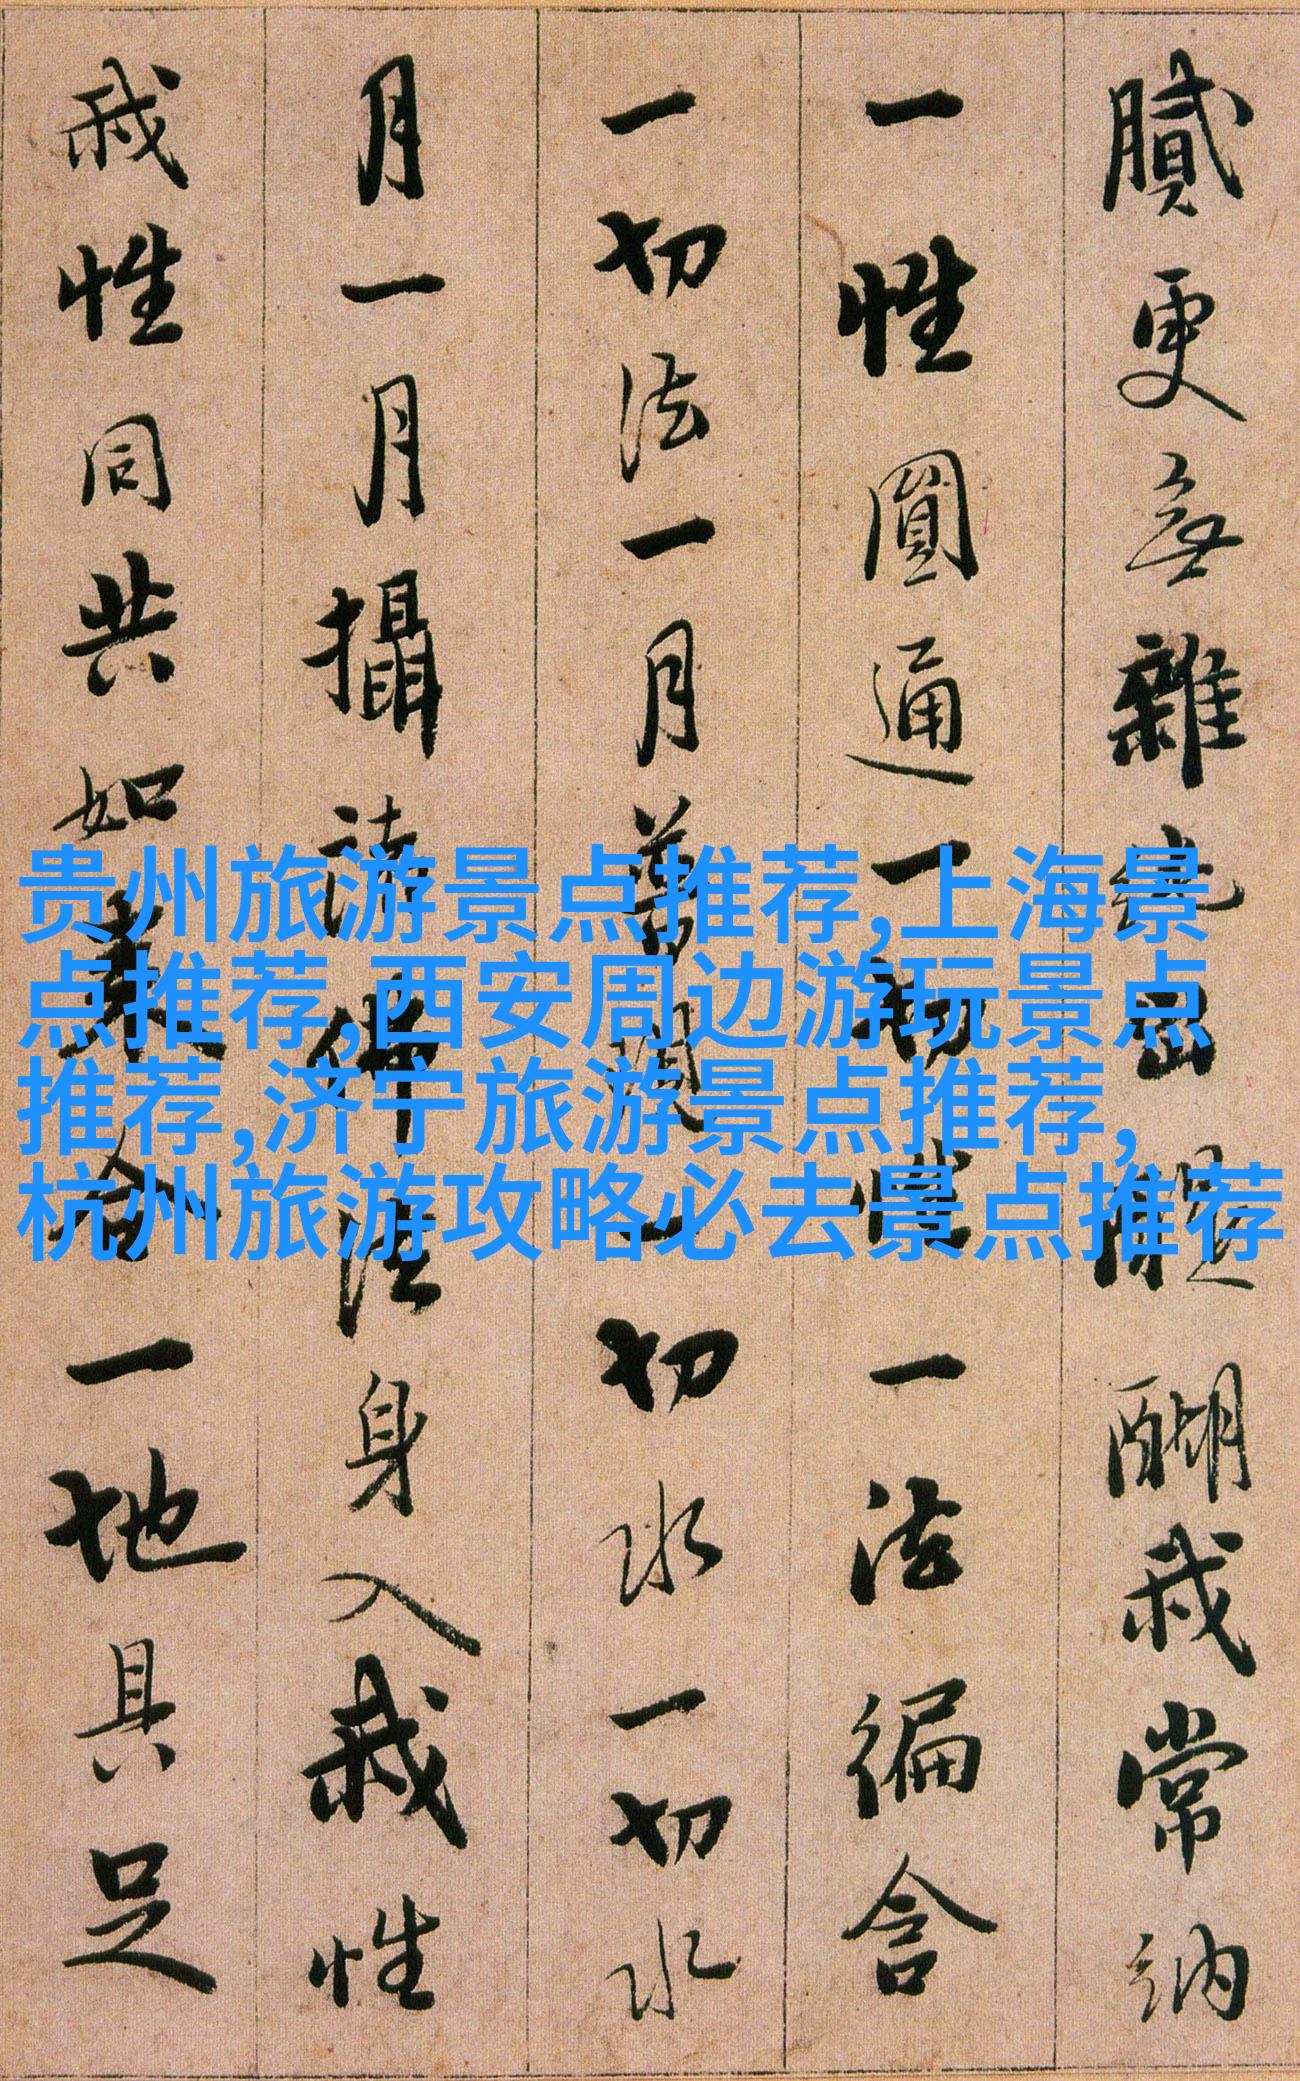 膩更無雜純出醍醐我常納
一性圓通一切性一法徧含
一切法一月普現一切水一切水
月一月攝諸佛法身入我性
我性同共如來合一地具足
贵州旅游景点推荐,上海景
点推荐,西安周边游玩景点
推荐,济宁旅游景点推荐,
杭州旅游攻略必去景点推荐